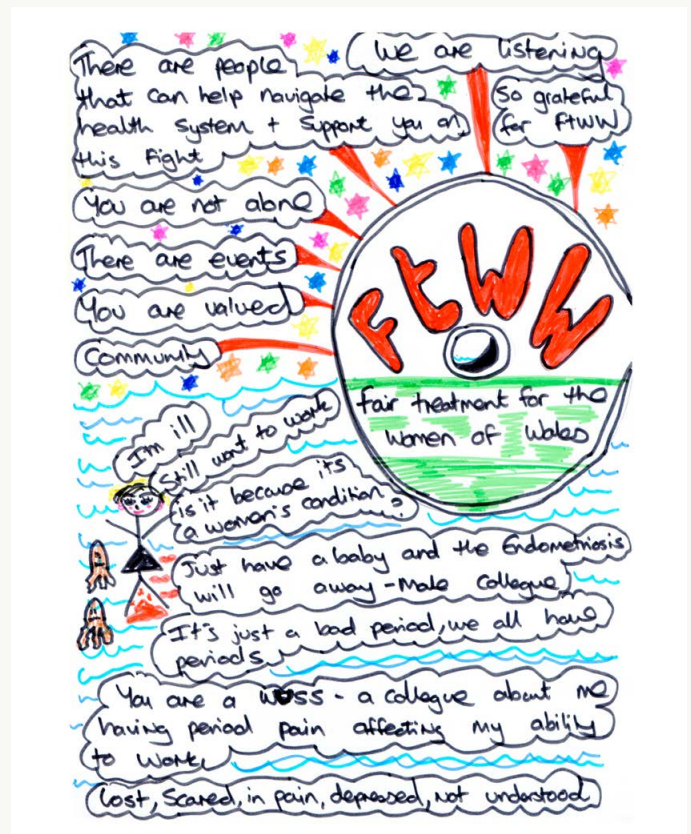 We are listening
There are people
that can help navigate the
health system + support you on
this fight
So grateful
for FTWW
You are not alone
There are events
You are valued
Community
FTWW
fair treatment for the
women of Wales
I'm ill
Still want to work
is it because its
a women's condition?
Just have a baby and the Endometriosis
will go away - Male Collegue
It's just a bad period, we all have
periods
You are a wuss - a collegue about me
having period pain affecting my ability
to work
Lost, Scared, in pain, depressed, not understood